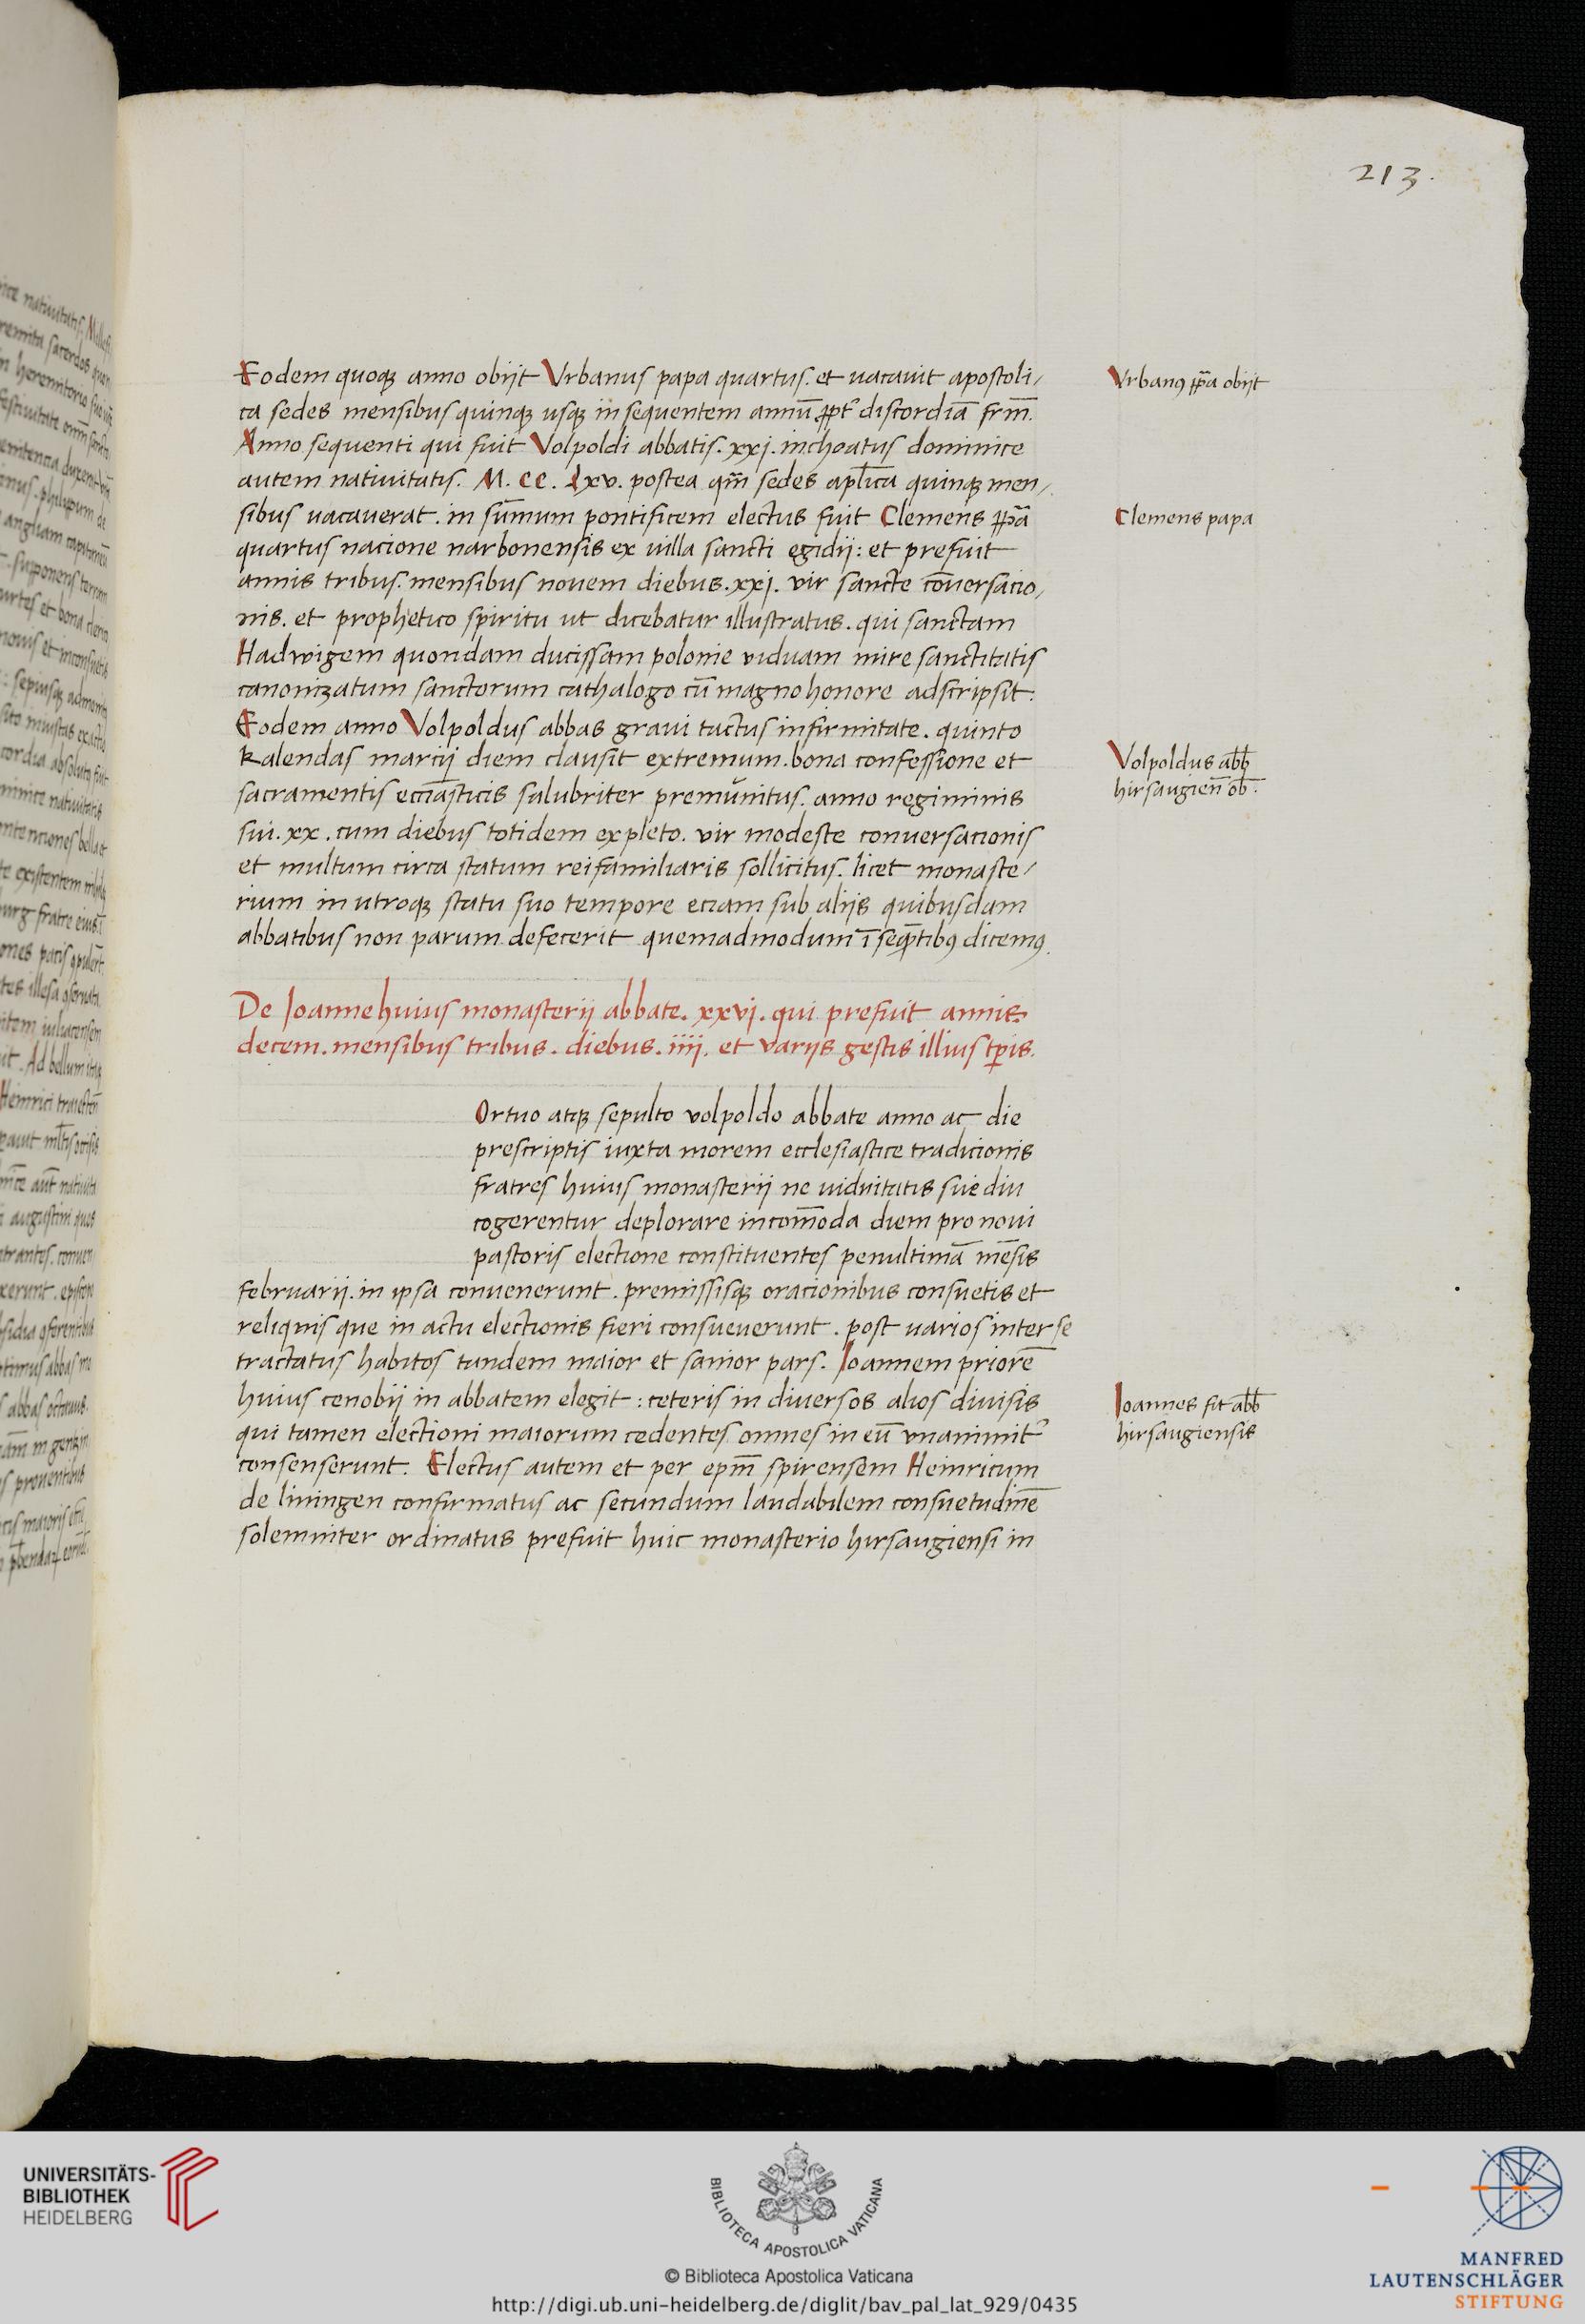 213.
Eodem quoqꝫ anno obijt Vrbanus papa quartus. et uacauit apostoli/
ca sedes mensibus quinqꝫ usqꝫ in sequentem annū ꝓpt̄ discordiā frm̄.
Anno sequenti qui fuit Volpoldi abbatis. xxj. inchoatus dominice
autem natiuitatis. M. CC. Lxv. postea qm̄ sedes apl̄ica quinqꝫ men/
sibus uacauerat. in sūmum pontificem electus fuit Clemens pp̄a
quartus nacione narbonensis ex uilla sancti egidij: et prefuit
annis tribus. mensibus nouem diebus. xxj. vir sancte cōuersacio/
nis. et prophetico spiritu ut dicebatur illustratus. qui sanctam
Hadwigem quondam ducissam polonie viduam mire sanctitatis
canonizatum sanctorum cathalogo cū magno honore adscripsit:
Eodem anno Volpoldus abbas graui tactus infirmitate. quinto
Kalendas marcij diem clausit extremum. bona confessione et
sacramentis ecciāsticis salubriter premunitus. anno regiminis
sui. xx. cum diebus totidem expleto. vir modeste conuersacionis
et multum circa statum reifamiliaris sollicitus. licet monaste/
rium in utroqꝫ statu suo tempore eciam sub alijs quibusdam
abbatibus non parum defecerit quemadmodum ī seqn̄tibꝰ dicemꝰ.
De Joanne huius monasterij abbate. xxvj. qui prefuit annis
decem. mensibus tribus. diebus. iiij. et varijs gestis illius tp̄is.
Ortuo atqꝫ sepulto volpoldo abbate anno ac die
prescriptis iuxta morem ecclesiastice tradicionis
fratres huius monasterij ne uiduitatis sue diu
cogerentur deplorare incom̄oda diem pro noui
pastoris electione constituentes penultimā mēsis
februarij. in ipsa conuenerunt. premissisqꝫ oracionibus consuetis et
reliquis que in actu electionis fieri consueuerunt. post uarios inter se
tractatus habitos tandem maior et sanior pars. Joannem priorē
huius cenobij in abbatem elegit: ceteris in diuersos alios diuisis
qui tamen electioni maiorum cedentes omnes in eū vnanimit̾
consenserunt. Electus autem et per epm̄ spirensem Heinricum
de liningen confirmatus ac secundum laudabilem consuetudinē
solemniter ordinatus prefuit huic monasterio hirsaugiensi in
Vrbanꝰ pp̄a obijt
Clemens papa
Volpoldus abb̄
hirsaugien̄ ob̄.
Joannes fit abb̄
hirsaugiensis
UNIVERSITÄTS-
BIBLIOTHEK
HEIDELBERG
BIBLIOTECA APOSTOLICA VATICANA
© Biblioteca Apostolica Vaticana
http://digi.ub.uni-heidelberg.de/diglit/bav_pal_lat_929/0435
MANFRED
LAUTENSCHLÄGER
STIFTUNG